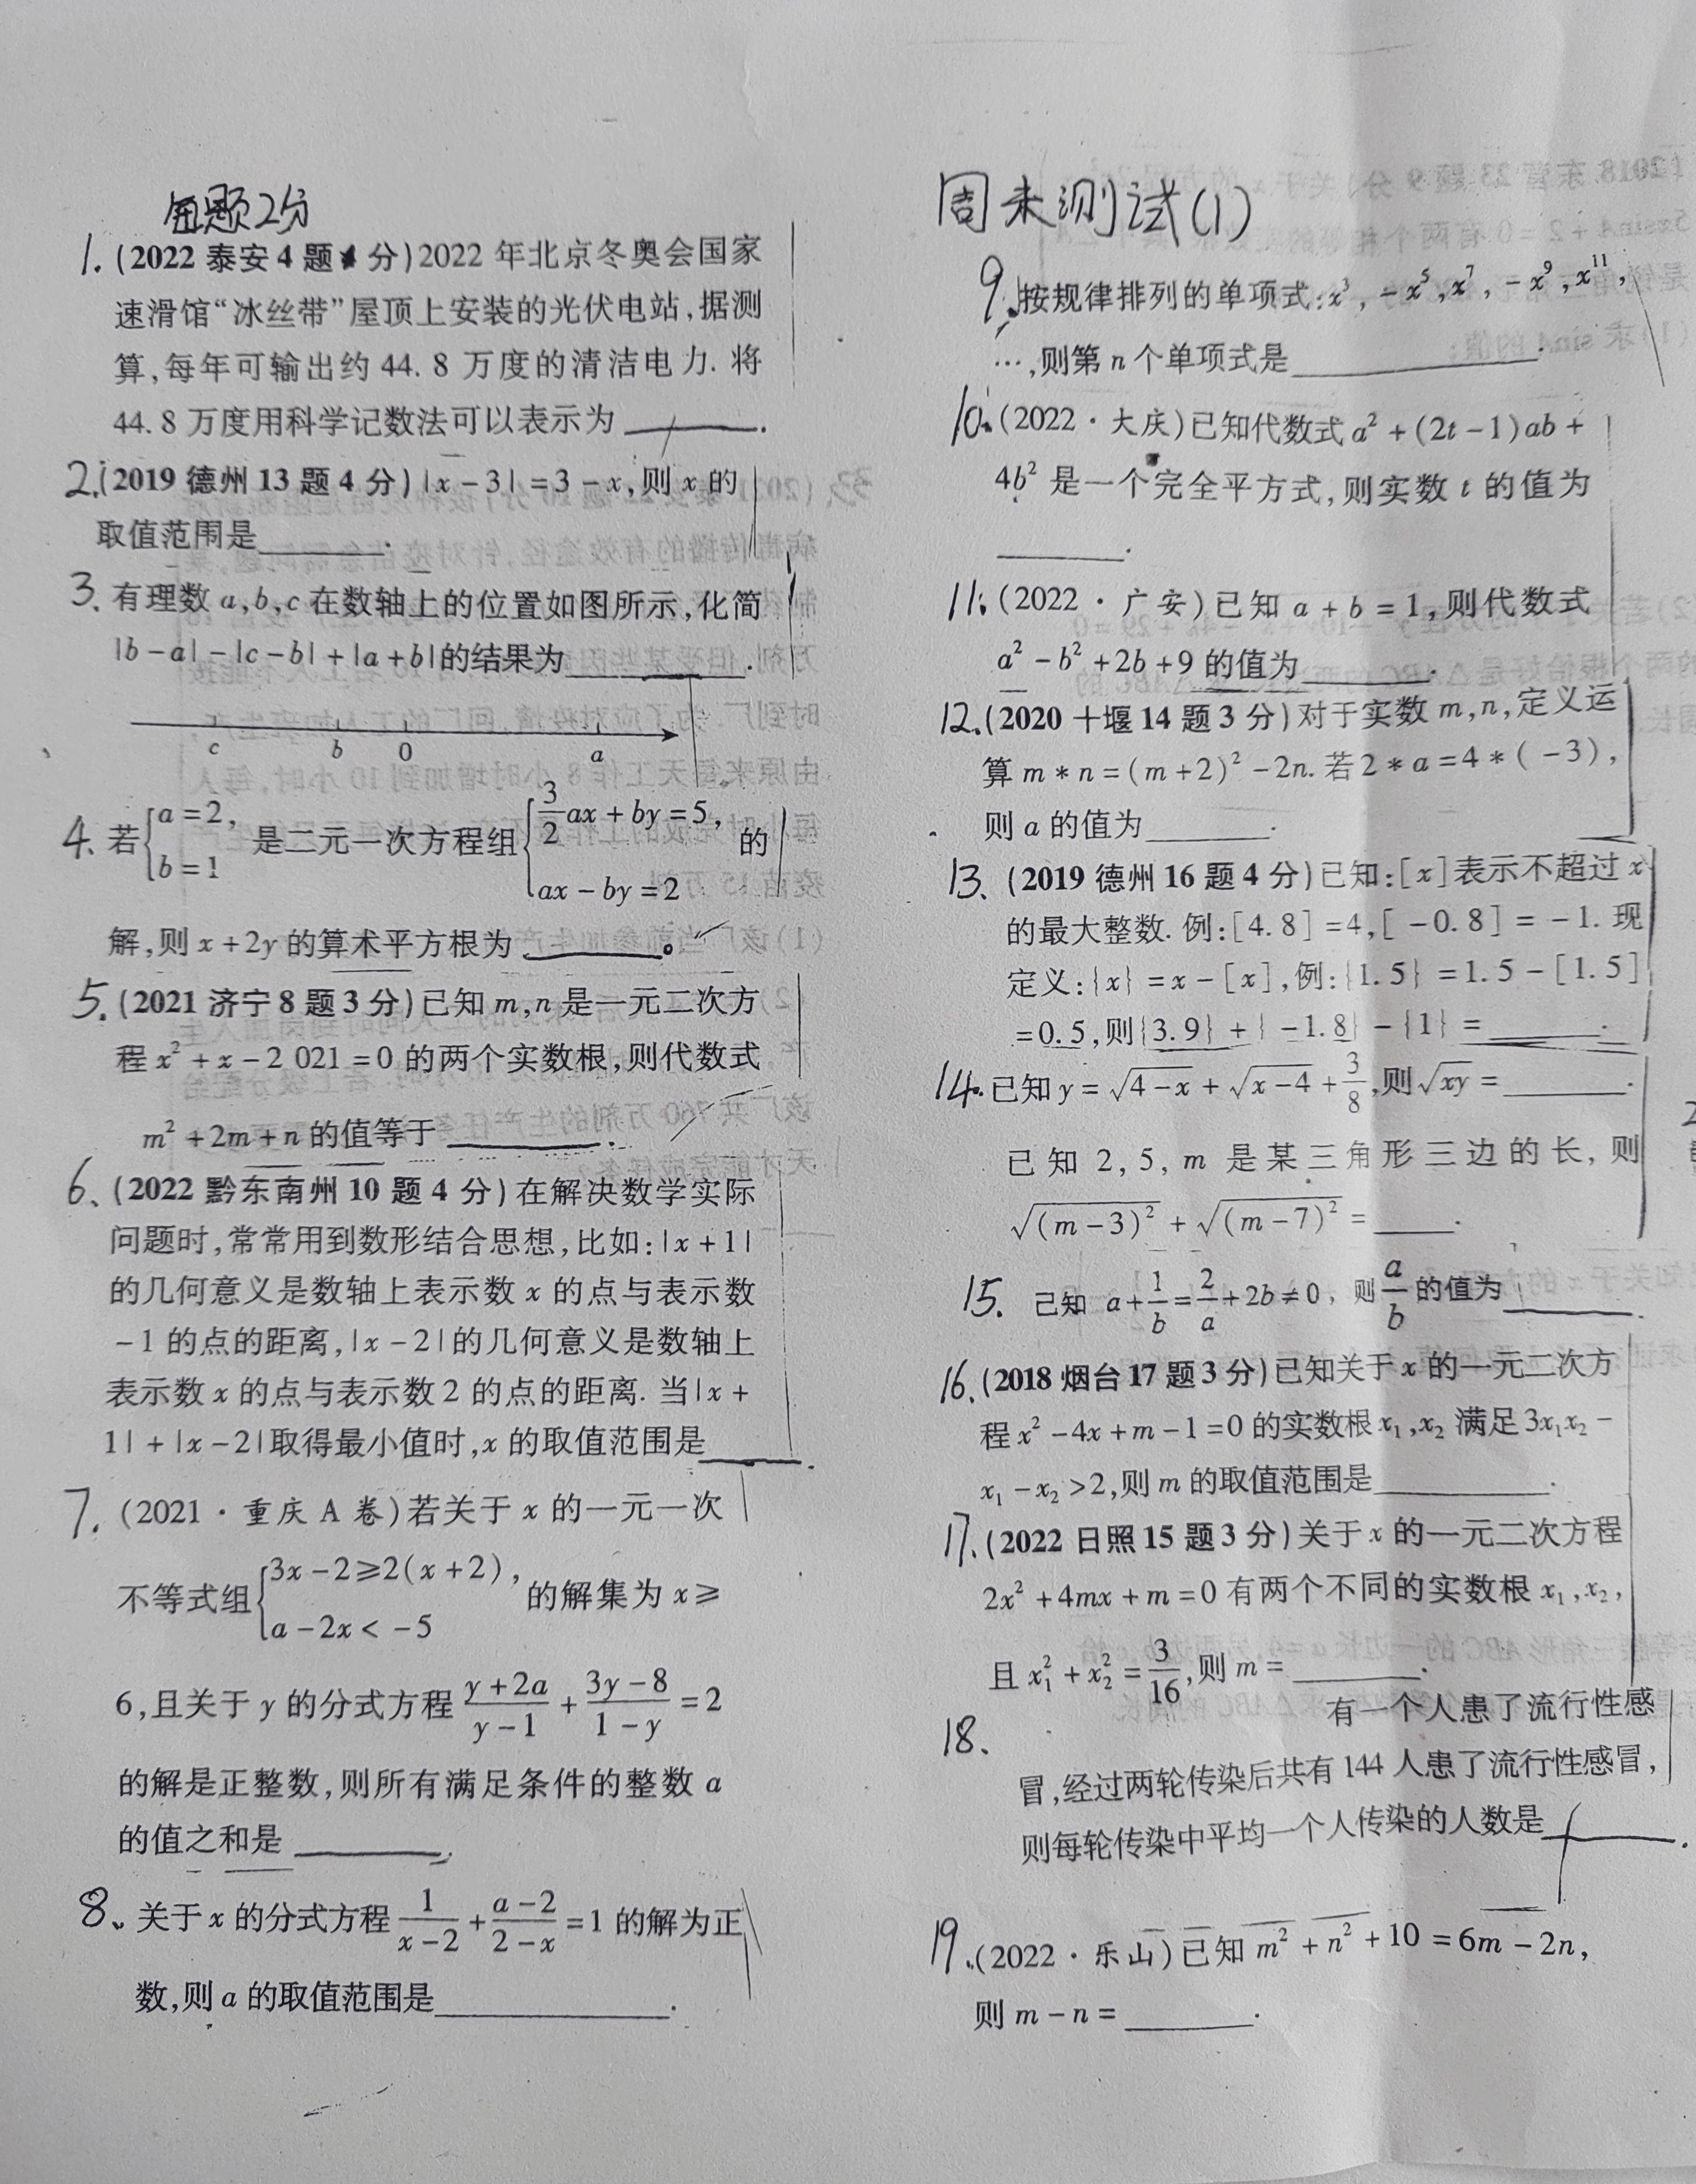 每题2分
1.(2022 泰安 4 题 分)2022 年北京冬奥会国家
速滑馆“冰丝带”屋顶上安装的光伏电站,据测
算,每年可输出约 44. 8 万度的清洁电力. 将
44. 8 万度用科学记数法可以表示为______.
2.(2019 德州 13 题 4 分)|x-3|=3-x,则 x 的
取值范围是______.
3.有理数 a,b,c 在数轴上的位置如图所示,化简
|b-a|-|c-b|+|a+b|的结果为______.
c b 0 a
4.若{a=2, b=1 是二元一次方程组{3/2 ax+by=5, ax-by=2 的
解,则 x+2y 的算术平方根为______。
5.(2021 济宁 8 题 3 分)已知 m,n 是一元二次方
程 x²+x-2 021=0 的两个实数根,则代数式
m²+2m+n 的值等于______.
6、(2022 黔东南州 10 题 4 分)在解决数学实际
问题时,常常用到数形结合思想,比如:|x+1|
的几何意义是数轴上表示数 x 的点与表示数
-1 的点的距离,|x-2|的几何意义是数轴上
表示数 x 的点与表示数 2 的点的距离. 当|x+
1|+|x-2|取得最小值时,x 的取值范围是______.
7.(2021·重庆 A 卷)若关于 x 的一元一次
不等式组{3x-2≥2(x+2), a-2x<-5 的解集为 x≥
6,且关于 y 的分式方程 (y+2a)/(y-1)+(3y-8)/(1-y)=2
的解是正整数,则所有满足条件的整数 a
的值之和是______.
8、关于 x 的分式方程 1/(x-2)+(a-2)/(2-x)=1 的解为正
数,则 a 的取值范围是______.
周末测试(1)
9.按规律排列的单项式:x³,-x⁵,x⁷,-x⁹,x¹¹,
…,则第 n 个单项式是______.
10.(2022·大庆)已知代数式 a²+(2t-1)ab+
4b² 是一个完全平方式,则实数 t 的值为
______.
11.(2022·广安)已知 a+b=1,则代数式
a²-b²+2b+9 的值为______.
12.(2020 十堰 14 题 3 分)对于实数 m,n,定义运
算 m*n=(m+2)²-2n. 若 2*a=4*(-3),
则 a 的值为______.
13、(2019 德州 16 题 4 分)已知:[x]表示不超过 x
的最大整数. 例:[4. 8]=4,[-0. 8]=-1. 现
定义:{x}=x-[x],例:{1. 5}=1. 5-[1. 5]
=0. 5,则{3. 9}+{-1. 8}-{1}=______.
14.已知 y=√(4-x)+√(x-4)+3/8,则√(xy)=______.
已知 2,5,m 是某三角形三边的长,则
√((m-3)²)+√((m-7)²)=______.
15.已知 a+1/b=2/a+2b≠0,则 a/b 的值为______.
16.(2018 烟台 17 题 3 分)已知关于 x 的一元二次方
程 x²-4x+m-1=0 的实数根 x₁,x₂ 满足 3x₁x₂-
x₁-x₂>2,则 m 的取值范围是______.
17.(2022 日照 15 题 3 分)关于 x 的一元二次方程
2x²+4mx+m=0 有两个不同的实数根 x₁,x₂,
且 x₁²+x₂²=3/16,则 m=______.
18.有一个人患了流行性感
冒,经过两轮传染后共有 144 人患了流行性感冒,
则每轮传染中平均一个人传染的人数是______.
19.(2022·乐山)已知 m²+n²+10=6m-2n,
则 m-n=______.